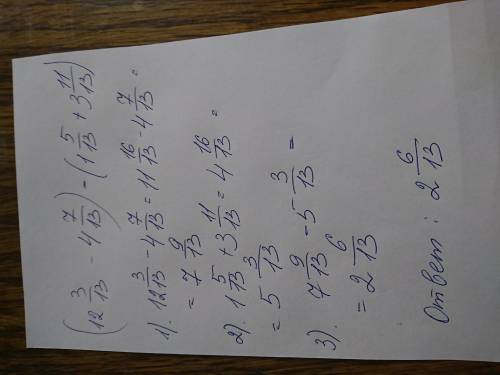 (12 3/13 - 4 7/13) - (1 5/13 + 3 11/13)
1). 12 3/13 - 4 7/13 = 11 16/13 - 4 7/13 =
= 7 9/13
2). 1 5/13 + 3 11/13 = 4 16/13 =
= 5 3/13
3). 7 9/13 - 5 3/13 =
= 2 6/13
Ответ: 2 6/13